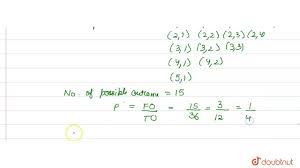 (2,1) (2,2) (2,3) (2,4)
(3,1) (3,2) (3,3)
(4,1) (4,2)
(5,1)
No. of possible outcome = 15
P = FO/TO = 15/36 = 3/12 = 1/4
doubtnut